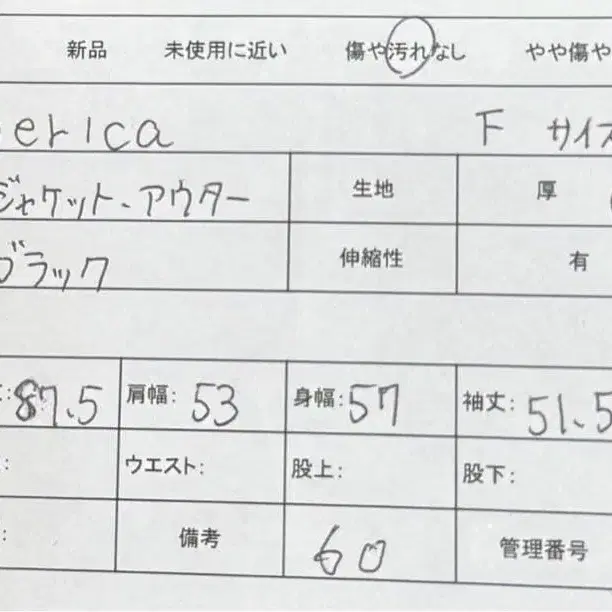 新品 未使用に近い 傷や汚れなし やや傷や
erica F サイズ
ジャケット、アウター 生地 厚
ブラック 伸縮性 有
: 87.5 肩幅: 53 身幅: 57 袖丈: 51.5
: ウエスト: 股上: 股下:
: 備考 60 管理番号